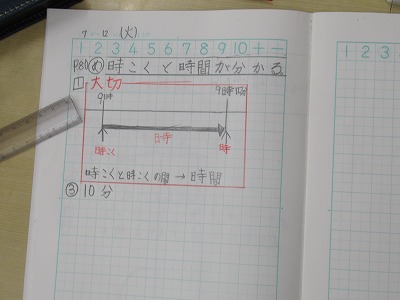 7 12 (火)
1 2 3 4 5 6 7 8 9 10 + −
め 時こくと時間が分かる。
1 大切
9時
日時
時こく 時
時こくと時こくの間 → 時間
③ 10分
1 2 3 4